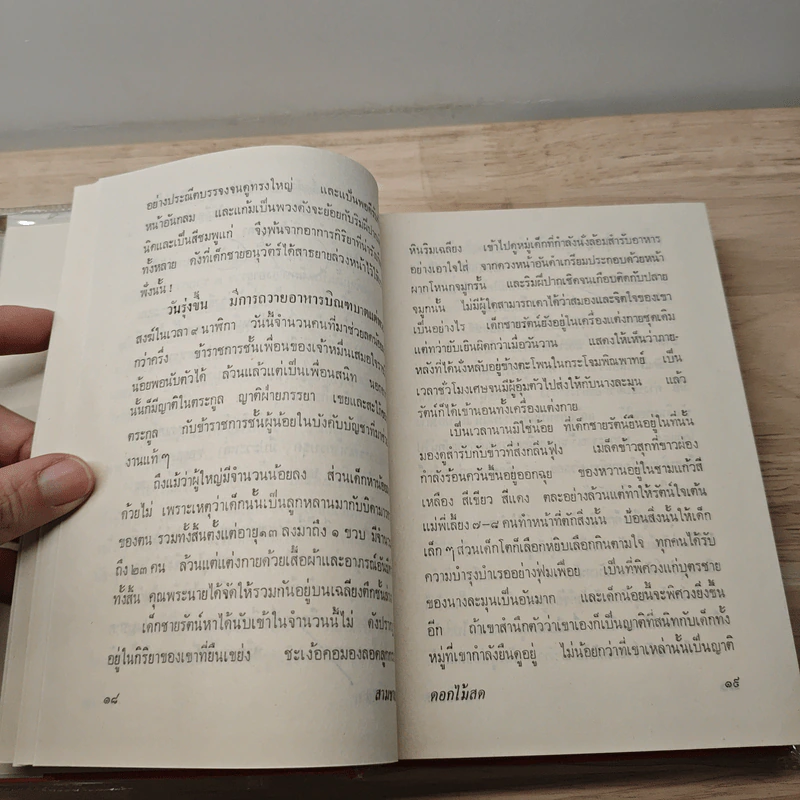 อย่างประณีตบรรจงจนดูทรงใหญ่ และแป้นพอดีกับ
หน้าอันกลม และแก้มเป็นพวงดังจะย้อยกับริมฝีปาก
นิดและเป็นสีชมพูแก่ จึงพ้นจากอาการกิริยาที่น่ารัก
ทั้งหลาย ดังที่เด็กชายอนุวัตร์ได้สาธยายล่วงหน้าไว้
พึ่งนั้น !
วันรุ่งขึ้น มีการถวายอาหารบิณฑบาตแด่พระ
สงฆ์ในเวลา ๙ นาฬิกา วันนี้จำนวนคนที่มาช่วยลดน้อย
กว่าครึ่ง ข้าราชการชั้นเพื่อนของเจ้าหมื่นเสมอใจราช
น้อยพอนับตัวได้ ล้วนแล้วแต่เป็นเพื่อนสนิท นอก
นั้นก็มีญาติในตระกูล ญาติฝ่ายภรรยา เขยและสะใภ้
ตระกูล กับข้าราชการชั้นผู้น้อยในบังคับบัญชาที่มา
งานแท้ ๆ
ถึงแม้ว่าผู้ใหญ่มีจำนวนน้อยลง ส่วนเด็กหาน้อย
ด้วยไม่ เพราะเหตุว่าเด็กนั้นเป็นลูกหลานมากับบิดามารดา
ของตน รวมทั้งสิ้นตั้งแต่อายุ ๑๓ ลงมาถึง ๑ ขวบ มี
ถึง ๒๓ คน ล้วนแต่แต่งกายด้วยเสื้อผ้าและอาภรณ์อัน
ทั้งสิ้น คุณพระนายได้จัดให้รวมกันอยู่บนเฉลียงตึกชั้น
เด็กชายรัตน์หาได้นับเข้าในจำนวนนี้ไม่ ดังปรากฏ
อยู่ในกิริยาของเขาที่ยืนเขย่ง ชะเง้อคอมองลอดลูกกรง
๑๘
สามชาย
หินริมเฉลียง เข้าไปดูหมู่เด็กที่กำลังนั่งล้อมสำรับอาหาร
อย่างเอาใจใส่ จากดวงหน้าอันดำเกรียมประกอบด้วยหน้า
ผากโหนกจมูกรั้น และริมฝีปากเชิดจนเกือบติดกับปลาย
จมูกนั้น ไม่มีผู้ใดสามารถเดาได้ว่าสมองและจิตใจของเขา
เป็นอย่างไร เด็กชายรัตน์ยังอยู่ในเครื่องแต่งกายชุดเดิม
แต่ทว่ายับเยินผิดกว่าเมื่อวันวาน แสดงให้เห็นว่าภาย-
หลังที่ได้นั่งหลับอยู่ข้างตะโพนในกระโจมพิณพาทย์ เป็น
เวลาชั่วโมงเศษจนมีผู้อุ้มตัวไปส่งให้กับนางละมุน แล้ว
รัตน์ก็ได้เข้านอนทั้งเครื่องแต่งกาย
เป็นเวลานานมิใช่น้อย ที่เด็กชายรัตน์ยืนอยู่ในที่นั้น
มองดูสำรับกับข้าวที่ส่งกลิ่นฟุ้ง เมล็ดข้าวสุกที่ขาวผ่อง
กำลังร้อนควันขึ้นอยู่ออกฉุย ของหวานอยู่ในชามแก้วสี
เหลือง สีเขียว สีแดง ตละอย่างล้วนแต่ทำให้รัตน์ใจเต้น
แม่พี่เลี้ยง ๗-๘ คนทำหน้าที่ตักสิ่งนั้น ป้อนสิ่งนั้นให้เด็ก
เล็ก ๆ ส่วนเด็กโตก็เลือกหยิบเลือกกินตามใจ ทุกคนได้รับ
ความบำรุงบำเรออย่างฟุ่มเฟือย เป็นที่พิศวงแก่บุตรชาย
ของนางละมุนเป็นอันมาก และเด็กน้อยนี้จะพิศวงยิ่งขึ้น
อีก ถ้าเขาสำนึกตัวว่าเขาเองก็เป็นญาติที่สนิทกับเด็กทั้ง
หมู่ที่เขากำลังยืนดูอยู่ ไม่น้อยกว่าที่เขาเหล่านั้นเป็นญาติ
ดอกไม้สด
๑๙